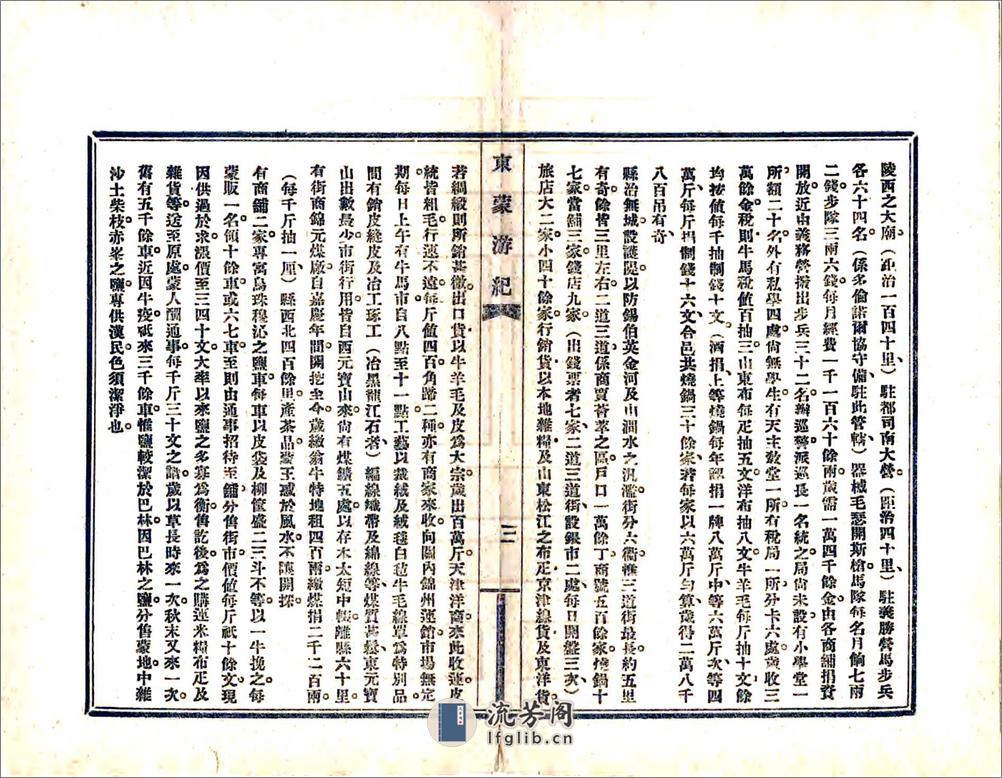 陵西之大廟（距治一百四十里）駐都司南大營（距治四十里）駐義勝營馬步兵
各六十四名（係多倫諾爾協守備駐此管轄）器械毛瑟開斯槍馬隊每名月餉七兩
二錢步隊三兩六錢每月經費一千一百六十餘兩歲需一萬四千餘金由各商鋪捐資
開放近由義務營撥出步兵三十二名辦巡警派巡長一名統之局尚未設有小學堂一
所額二十名外有私學四處尚無學生有天主敎堂一所有稅局一所分卡六處歲收三
萬餘金稅則牛馬稅值百抽三山東布每疋抽五文洋布抽八文牛羊毛每斤抽十文餘
均按值每千抽制錢十文（酒捐上等燒鍋每年認捐一牌八萬斤中等六萬斤次等四
萬斤每斤捐制錢十六文合邑共燒鍋三十餘家若每家以六萬斤勻算歲得二萬八千
八百吊有奇
縣治無城設護隄以防錫伯英金河及山澗水之汎濫街分六衢惟三道街最長約五里
有奇餘皆三里左右二道三道係商賈薈萃之區戶口一萬餘丁商號五百餘家燒鍋十
七家當舖三家錢店九家（出錢票者七家二道三道街設銀市二處每日開盤三次）
旅店大二家小四十餘家行銷貨以本地雜糧及山東松江之布疋京津線貨及東洋貨
東蒙游紀
三
若綢緞則所銷甚微出口貨以牛羊毛及皮爲大宗歲出百萬斤天津洋商來此收運皮
統皆粗毛行運不遠每斤值四百角蹄二種亦有商家來收向關內錦州運銷市場無定
期每日上午有牛馬市自八點至十一點工藝以栽絨及絨毯白毡牛毛線單爲特別品
間有銷皮縫皮及冶工琢工（冶黑龍江石者）編線織帶及綿線等煤質甚鬆東元寶
山出數最少市街行用皆自西元寶山來尚有煤鑛五處以存木太短中輟離縣六十里
有街商錦元煤廠自嘉慶年間開挖至今歲繳翁牛特地租四百兩繳煤捐二千二百兩
（每千斤抽一厘）縣西北四百餘里產茶晶蒙王惑於風水不準開採
有商鋪二家專寓烏珠穆沁之鹽車每車以皮袋及柳筐盛二三斗不等以一牛挽之每
蒙販一名領十餘車或六七車至則由通事招待至鋪分售街市價值每斤祇十餘文現
因供過於求漲價至三四十文大率以來鹽之多寡爲衡售訖後爲之購運米糧布疋及
雜貨等送至原處蒙人酬通事每千斤三十文之譜歲以草長時來一次秋末又來一次
舊有五千餘車近因牛疫祇來三千餘車惟鹽較潔於巴林因巴林之鹽分售蒙地中雜
沙土柴枝亦峯之鹽專供漢民色須潔淨也
流芳閣
lfglib.cn